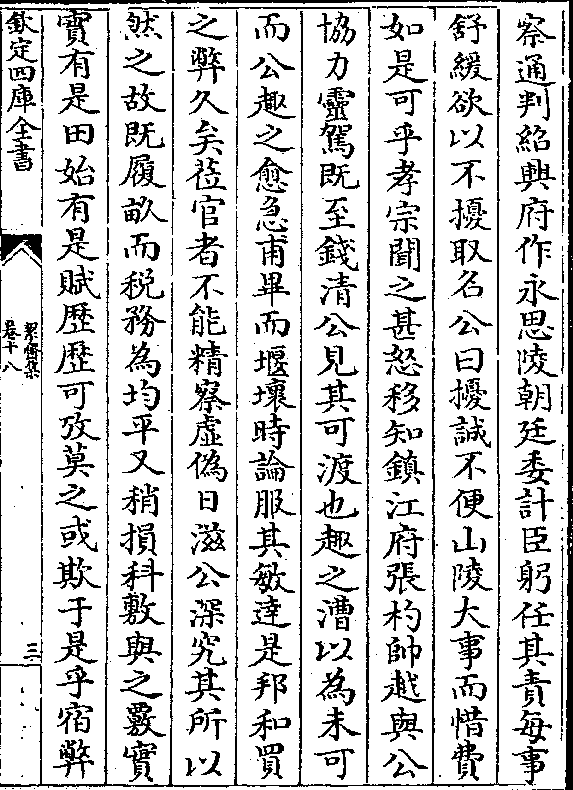 察通判紹興府作永思陵朝廷委計臣躬任其責每事
舒緩欲以不擾取名公曰擾誠不便山陵大事而惜費
如是可乎孝宗聞之甚怒移知鎮江府張杓帥越與公
協力靈駕既至錢清公見其可渡也趣之漕以為未可
而公趣之愈急甫畢而堰壞時論服其敏達是邦和買
之弊久矣莅官者不能精察虛偽日滋公深究其所以
然之故既履畝而税務為均平又稍損科敷與之覈實
實有是田始有是賦歷歷可攷莫之或欺于是乎宿弊
欽定四庫全書
絜齋集
卷十八
三